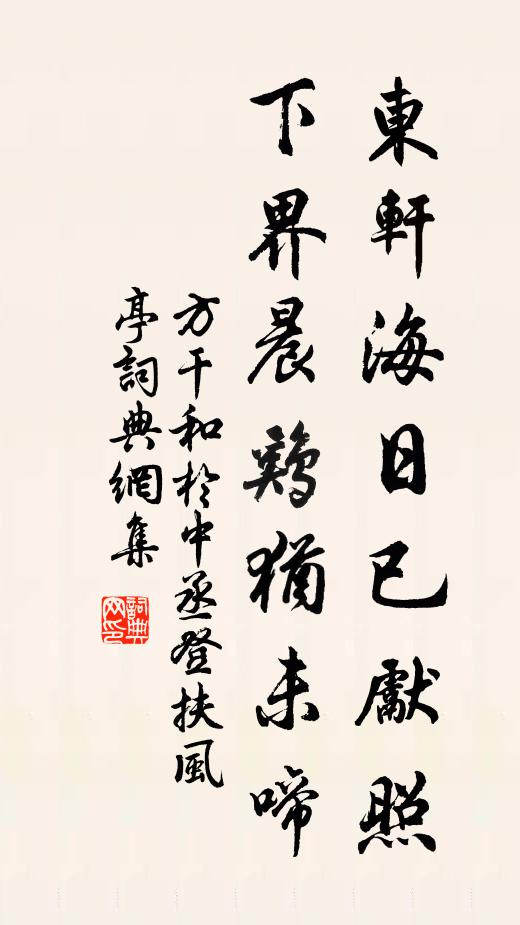 東軒海日已獻照
下界晨鷄猶未啼
方干和於中丞登扶風
亭詞典網集
詞典
网印